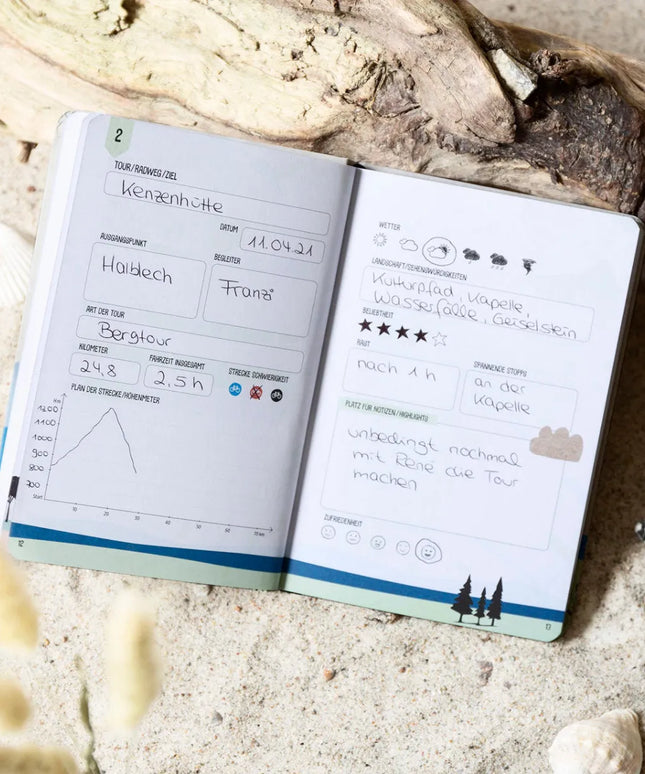 2
TOUR/RADWEG/ZIEL
Kenzenhütte
DATUM
11.04.21
AUSGANGSPUNKT
Halblech
BEGLEITER
Franzi
ART DER TOUR
Bergtour
KILOMETER
24,8
FAHRZEIT INSGESAMT
2,5 h
STRECKE SCHWIERIGKEIT
PLAN DER STRECKE/HÖHENMETER
Hm
1200
1100
1000
900
800
700
Start
10
20
30
40
50
60
70 km
12
WETTER
LANDSCHAFT/SEHENSWÜRDIGKEITEN
Kulturpfad, Kapelle,
Wasserfälle, Geiselstein
BELIEBTHEIT
RAST
nach 1 h
SPANNENDE STOPPS
an der
Kapelle
PLATZ FÜR NOTIZEN/HIGHLIGHTS
unbedingt nochmal
mit René die Tour
machen
ZUFRIEDENHEIT
13